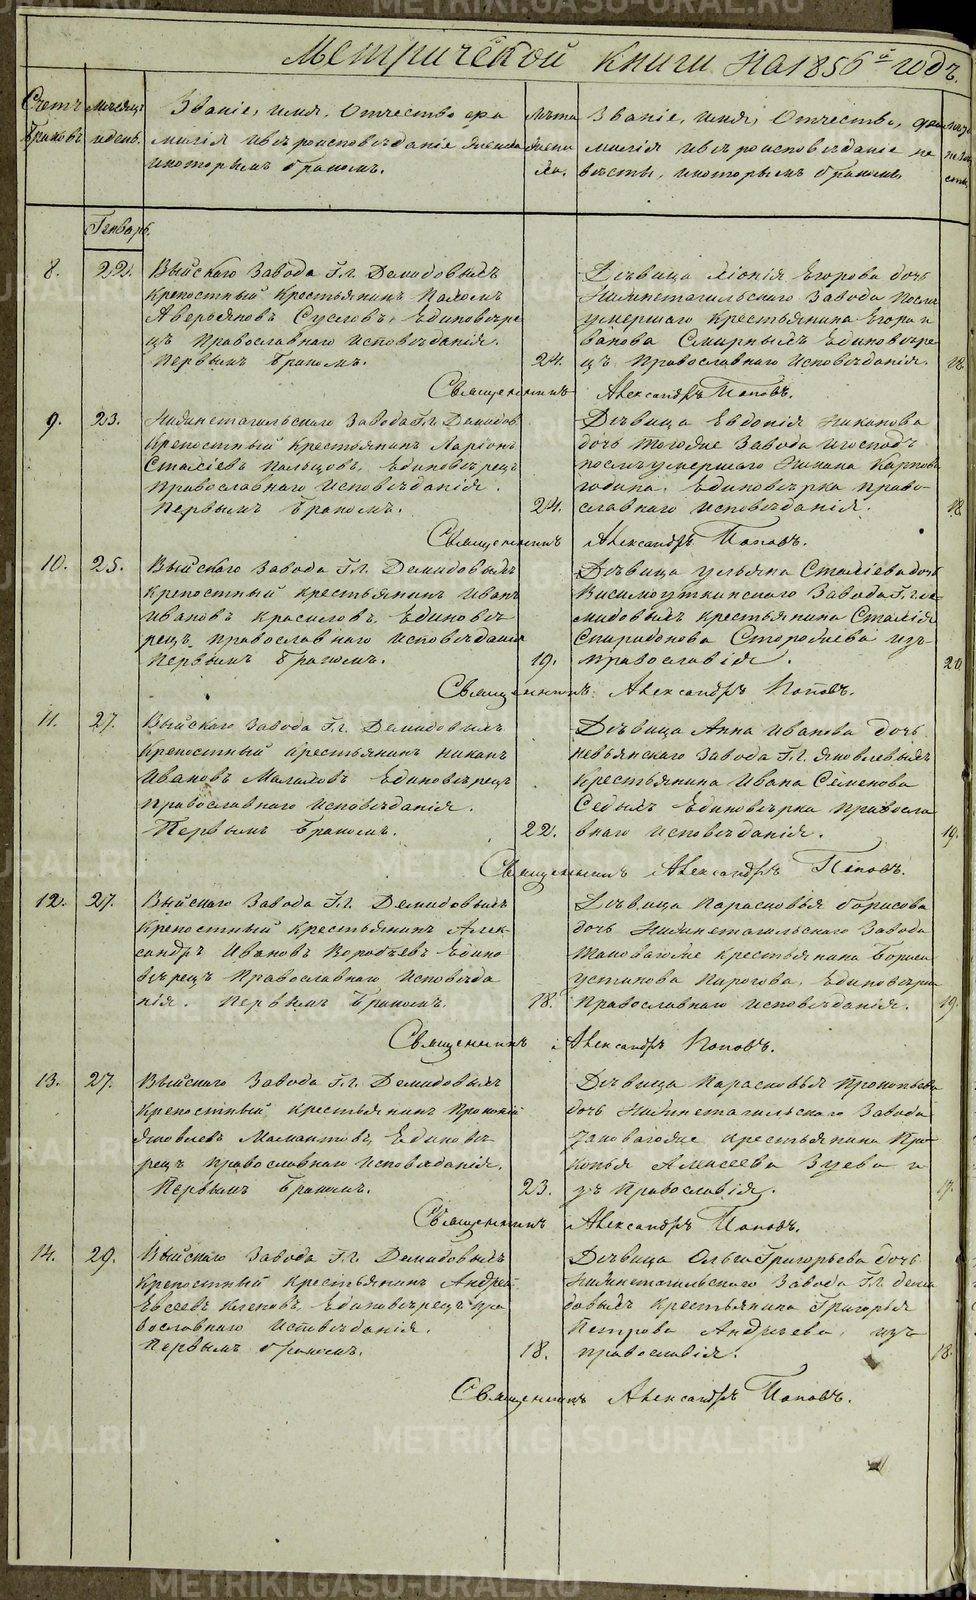 Метрической книги на 1856й годъ.
Счетъ браковъ
Мѣсяцъ и день.
Званіе, имя, Отчество, фа
милія и вѣроисповѣданіе жениха
и которымъ бракомъ.
Лѣта жени
ха.
Званіе, имя, Отчество, фа
милія и вѣроисповѣданіе не
вѣсты, и которымъ бракомъ
Генварь.
8.
22.
Выйскаго Завода Г.г. Демидовыхъ
крепостный крестьянинъ Пахомъ
Аверьяновъ Сусловъ, Единовѣре
цъ Православнаго исповѣданія.
Первымъ бракомъ.
24.
Дѣвица Егорова дочь
Нижнетагильскаго Завода после
умершаго крестьянина Егора и
ванова Смирныхъ Единовѣре
цъ Православнаго исповѣданія.
18.
Священникъ Александръ Поповъ.
9.
23.
Нижнетагильскаго Завода Г.г. Демидов
крепостный крестьянинъ Ларіонъ
Пальцовъ, Единовѣрецъ
Православнаго исповѣданія.
Первымъ бракомъ.
24.
Дѣвица Евдокія
дочь тогоже Завода и господъ
послѣ умершаго Карпова
Единовѣрка право-
славнаго исповѣданія.
18.
Священникъ Александръ Поповъ.
10.
25.
Выйскаго Завода Г.г. Демидовыхъ
крепостный крестьянинъ Иванъ
Ивановъ Красиловъ Единовѣ
рецъ, православнаго исповѣданія
Первымъ бракомъ.
19.
Дѣвица Ульяна дочь
Висимоуткинскаго Завода Г.г. де
мидовыхъ крестьянина
Спиридонова изъ
православія.
20
Священникъ Александръ Поповъ.
11.
27.
Выйскаго Завода Г.г. Демидовыхъ
крепостный крестьянинъ
Ивановъ Единовѣрецъ
православнаго исповѣданія.
Первымъ бракомъ.
22.
Дѣвица Анна Иванова дочь
Невьянскаго Завода Г.г. Яковлевыхъ
крестьянина Ивана Семенова
Седыхъ Единовѣрка православ
внаго исповѣданія.
19.
Священникъ Александръ Поповъ.
12.
27.
Выйскаго Завода Г.г. Демидовыхъ
крепостный крестьянинъ Алек-
сандръ Ивановъ Воробьевъ Едино
вѣрецъ Православнаго исповѣда
нія. Первымъ бракомъ.
18.
Дѣвица Парасковья Борисова
дочь Нижнетагильскаго Завода
таковагоже крестьянина Бориса
устинова Пирогова, Единовѣрка
Православнаго исповѣданія.
19.
Священникъ Александръ Поповъ.
13.
27.
Выйскаго Завода Г.г. Демидовыхъ
крепостный крестьянинъ Прокопій
Яковлевъ Мамонтовъ, Единовѣ
рецъ православнаго исповѣданія.
Первымъ бракомъ.
23.
Дѣвица Парасковья Прокопьева
дочь Нижнетагильскаго Завода
таковагоже крестьянина Про-
копья Алексеева Зуева и
зъ Православія.
17.
Священникъ Александръ Поповъ.
14.
29.
Выйскаго Завода Г.г. Демидовыхъ
крепостный крестьянинъ Андрей
Евсеевъ Единовѣрецъ пра
вославнаго исповѣданія.
Первымъ бракомъ.
18.
Дѣвица Ольга Григорьева дочь
Нижнетагильскаго Завода Г.г. деми
довыхъ крестьянина Григорья
Петрова Андреева, изъ
православія.
18.
Священникъ Александръ Поповъ.
METRIKI.GASO-URAL.RU